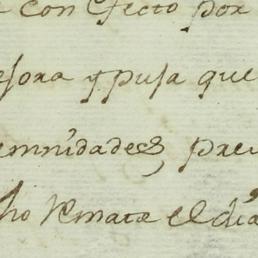 con efecto por
esora y puja que
emnidades prev
ho Remate el dia